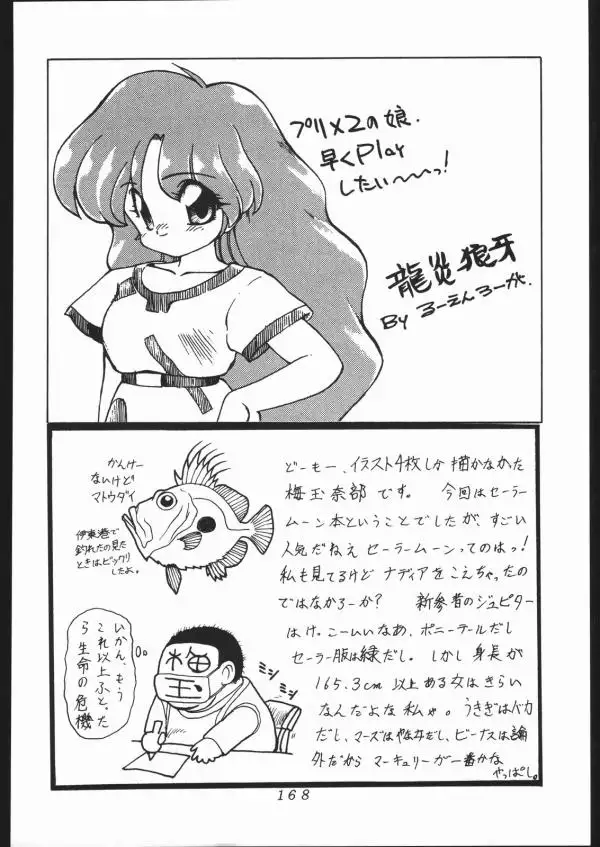 プリメ2の娘.
早くPlay
したい〜〜っ!
龍炎狼牙
By るーえんろーが.
かんけー
ないけど
マトウダイ
伊東港で
釣れたの見た
ときはビックリ
したよ。
どーもー、イラスト4枚しか描かなかた
梅玉奈部です。 今回はセーラー
ムーン本ということでしたが、すごい
人気だねえセーラームーンってのはっ!
私も見てるけどナディアをこえちゃったの
ではなかろーか? 新参者のジュピター
はけっこーいいなあ、ポニーテールだし
セーラー服は緑だし。しかし身長が
165.3cm以上ある女はきらい
なんだよな私ゃ。うさぎはバカ
だし、マーズはやな女だし、ビーナスは論
外だからマーキュリーが一番かな
やっぱし。
いかん、もう
これ以上ふとった
ら生命の危機
梅
玉
168